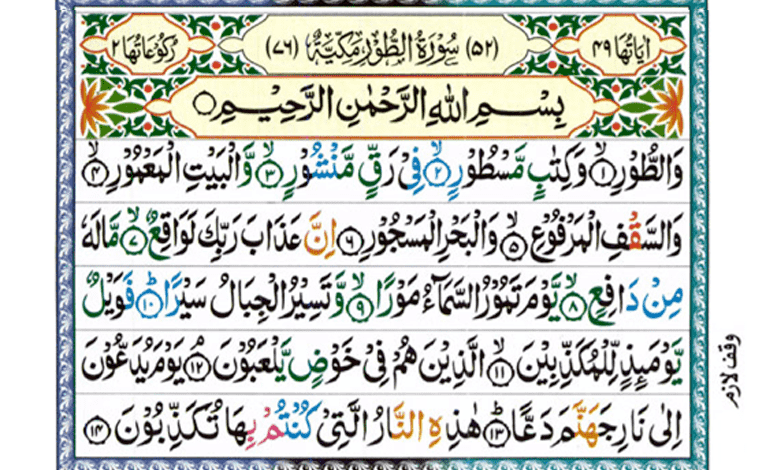 اٰيَاتُهَا ۴۹ (۵۲) سُوْرَةُ الطُّوْرِ مَكِّيَّةٌ (۷۶) رُكُوْعَاتُهَا ۲
بِسْمِ اللهِ الرَّحْمٰنِ الرَّحِيْمِ
وَالطُّوْرِ ۙ‏﴿۱﴾ وَكِتٰبٍ مَّسْطُوْرٍ ۙ‏﴿۲﴾ فِىْ رَقٍّ مَّنْشُوْرٍ ۙ‏﴿۳﴾ وَّالْبَيْتِ الْمَعْمُوْرِ ۙ‏﴿۴﴾
وَالسَّقْفِ الْمَرْفُوْعِ ۙ‏﴿۵﴾ وَالْبَحْرِ الْمَسْجُوْرِ ۙ‏﴿۶﴾ اِنَّ عَذَابَ رَبِّكَ لَوَاقِعٌ ۙ‏﴿۷﴾ مَّا لَهٗ
مِنْ دَافِعٍ ۙ‏﴿۸﴾ يَّوْمَ تَمُوْرُ السَّمَآءُ مَوْرًا ۙ‏﴿۹﴾ وَّتَسِيْرُ الْجِبَالُ سَيْرًا ؕ‏﴿۱۰﴾ فَوَيْلٌ
يَّوْمَئِذٍ لِّلْمُكَذِّبِيْنَ ۙ‏﴿۱۱﴾ الَّذِيْنَ هُمْ فِىْ خَوْضٍ يَّلْعَبُوْنَ ۘ‏﴿۱۲﴾ يَوْمَ يُدَعُّوْنَ
اِلٰى نَارِ جَهَنَّمَ دَعًّا ؕ‏﴿۱۳﴾ هٰذِهِ النَّارُ الَّتِىْ كُنْتُمْ بِهَا تُكَذِّبُوْنَ ﴿۱۴﴾
وقف لازم